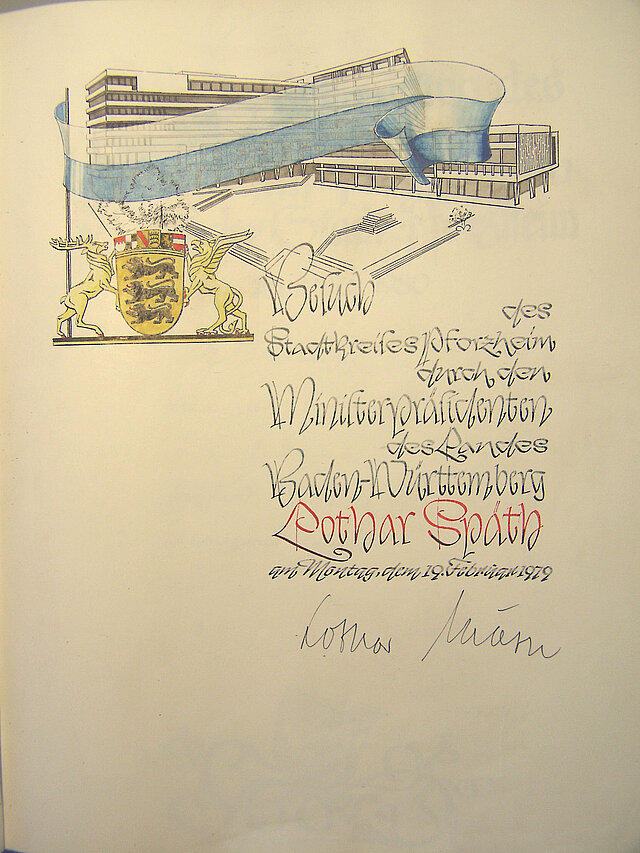 Besuch
des
Stadtkreises Pforzheim
durch den
Ministerpräsidenten
des Landes
Baden-Württemberg
Lothar Späth
am Montag, dem 19. Februar 1979
Lothar Späth